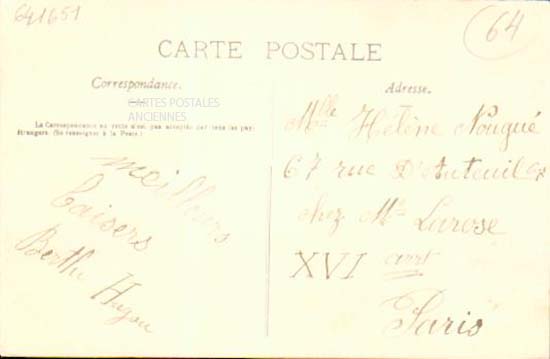 641651
64
CARTE POSTALE
Correspondance.
CARTES POSTALES
ANCIENNES
La Correspondance au recto n'est pas acceptée par tous les pays
étrangers. (Se renseigner à la Poste.)
meilleurs
baisers
Berthe
Adresse.
Mlle Hélène Nougué
67 rue D'Auteuil
chez Mr Larose
XVI arrt
Paris